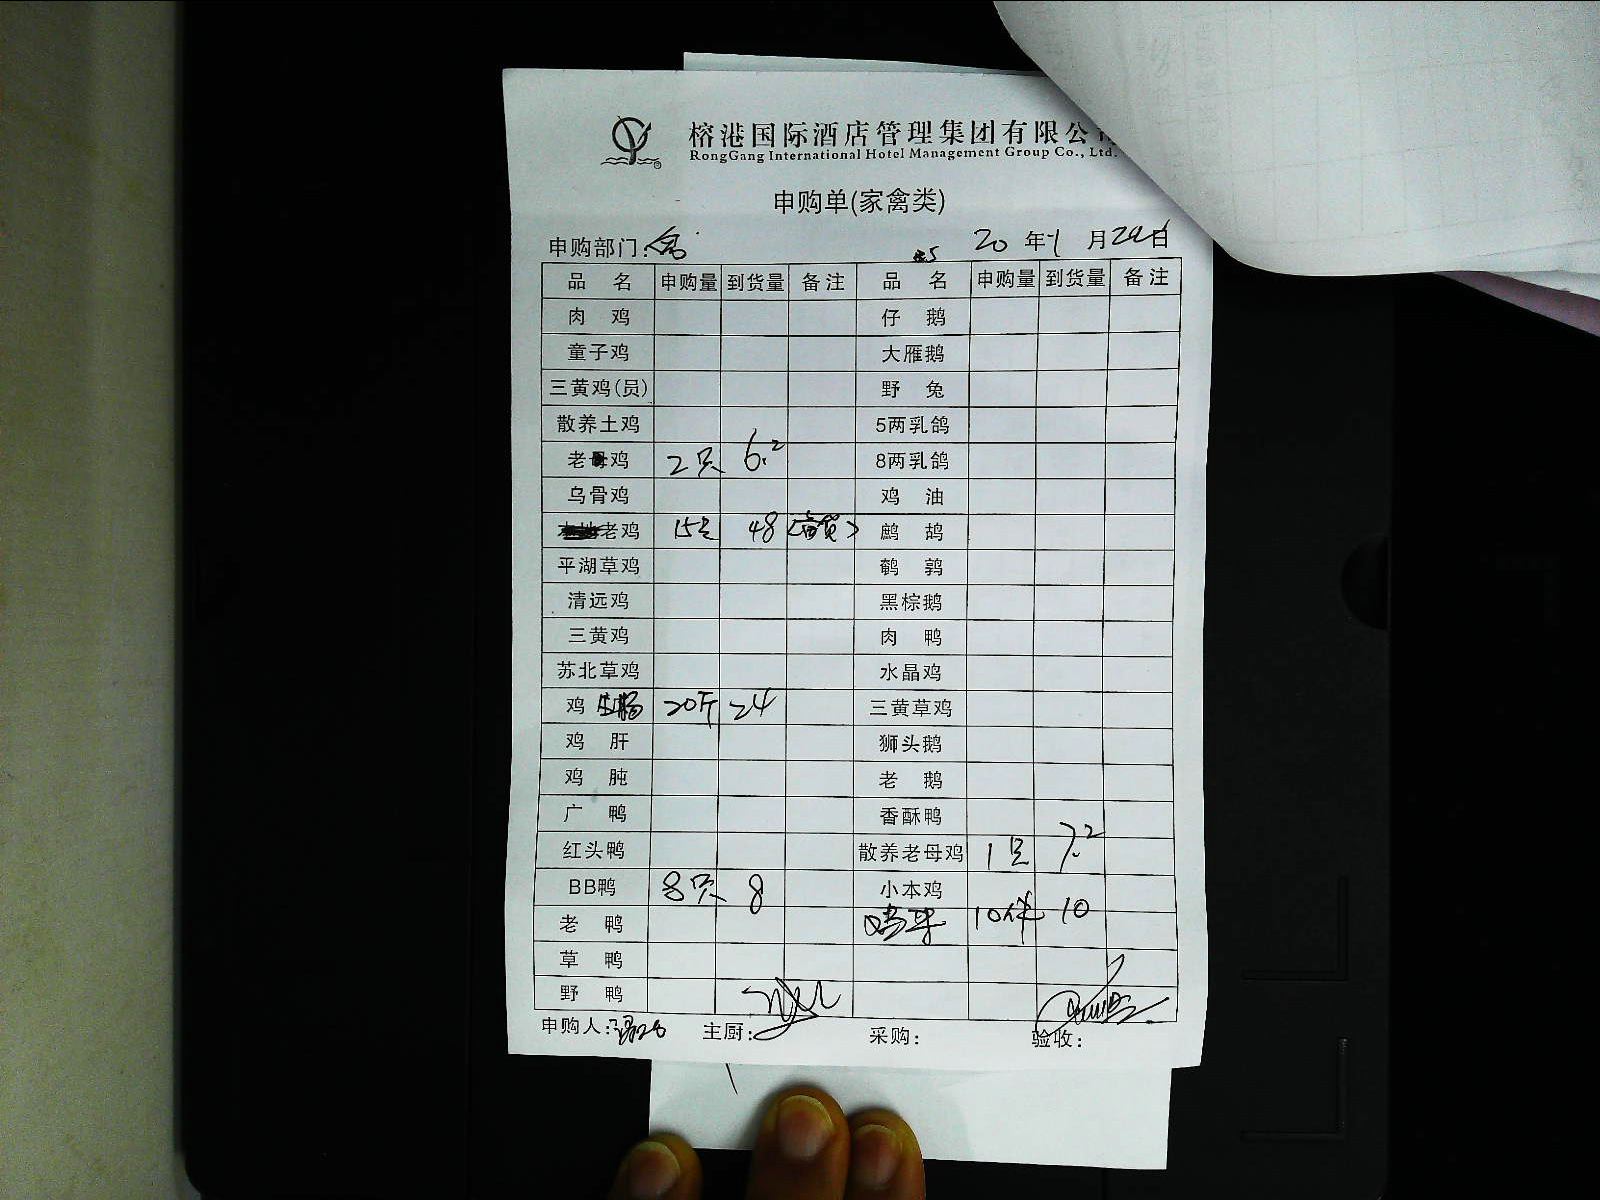 榕港国际酒店管理集团有限公司
RongGang International Hotel Management Group Co., Ltd.
申购单(家禽类)
申购部门: 20 年 月 日
品 名 申购量 到货量 备注 品 名 申购量 到货量 备注
肉 鸡 仔 鹅
童子鸡 大雁鹅
三黄鸡(员) 野 兔
散养土鸡 5两乳鸽
老母鸡 2只 6.2 8两乳鸽
乌骨鸡 鸡 油
老鸡 15只 48 鹧 鸪
平湖草鸡 鹌 鹑
清远鸡 黑棕鹅
三黄鸡 肉 鸭
苏北草鸡 水晶鸡
鸡 20斤 24 三黄草鸡
鸡 肝 狮头鹅
鸡 肫 老 鹅
广 鸭 香酥鸭
红头鸭 散养老母鸡 1只 7.2
BB鸭 8只 8 小本鸡
老 鸭 10件 10
草 鸭
野 鸭
申购人: 主厨: 采购: 验收: